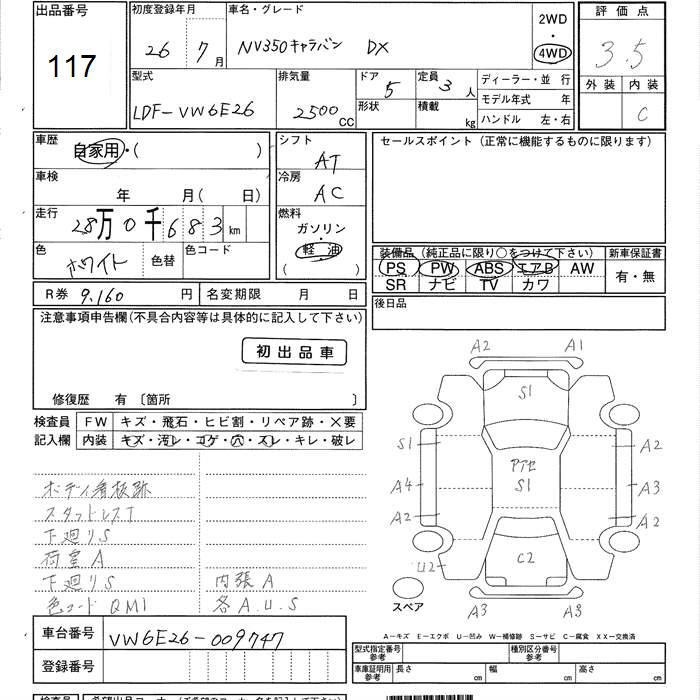 出品番号 117
初度登録年月 26 7月
車名・グレード NV350キャラバン DX
2WD
4WD
評価点 3.5
外装 内装 C
型式 LDF-VW6E26
排気量 2500 CC
ドア 5 定員 3人
形状 積載 kg
ディーラー・並行
モデル年式 年
ハンドル 左・右
車歴 自家用・( )
シフト AT
セールスポイント (正常に機能するものに限ります)
車検 年 月( 日)
冷房 AC
走行 28万0千683km
燃料 ガソリン・軽油
( )
色 ホワイト 色替 色コード
装備品 (純正品に限り○をつけて下さい) 新車保証書
PS PW ABS エアB AW 有・無
SR ナビ TV カワ
R券 9,160円 名変期限 月 日
後日品
注意事項申告欄(不具合内容等は具体的に記入して下さい)
初出品車
修復歴 有 〔箇所 〕
検査員 FW キズ・飛石・ヒビ割・リペア跡・×要
記入欄 内装 キズ・汚レ・コゲ・穴・スレ・キレ・破レ
ボディ看板跡
スタットレスT
下廻りS
荷室A
下廻りS 内張A
色コードQM1 各A.U.S
A2 A1
S1
S1 A2
アトセ
S1
A4 A3
A2 A2
U2 C2
スペア
A3 A3
車台番号 VW6E26-009747
登録番号
A-キズ E-エクボ U-凹み W-補修跡 S-サビ C-腐食 XX-交換済
型式指定番号 参考 種別区分番号 参考
車庫証明用 参考 長さ 幅 高さ